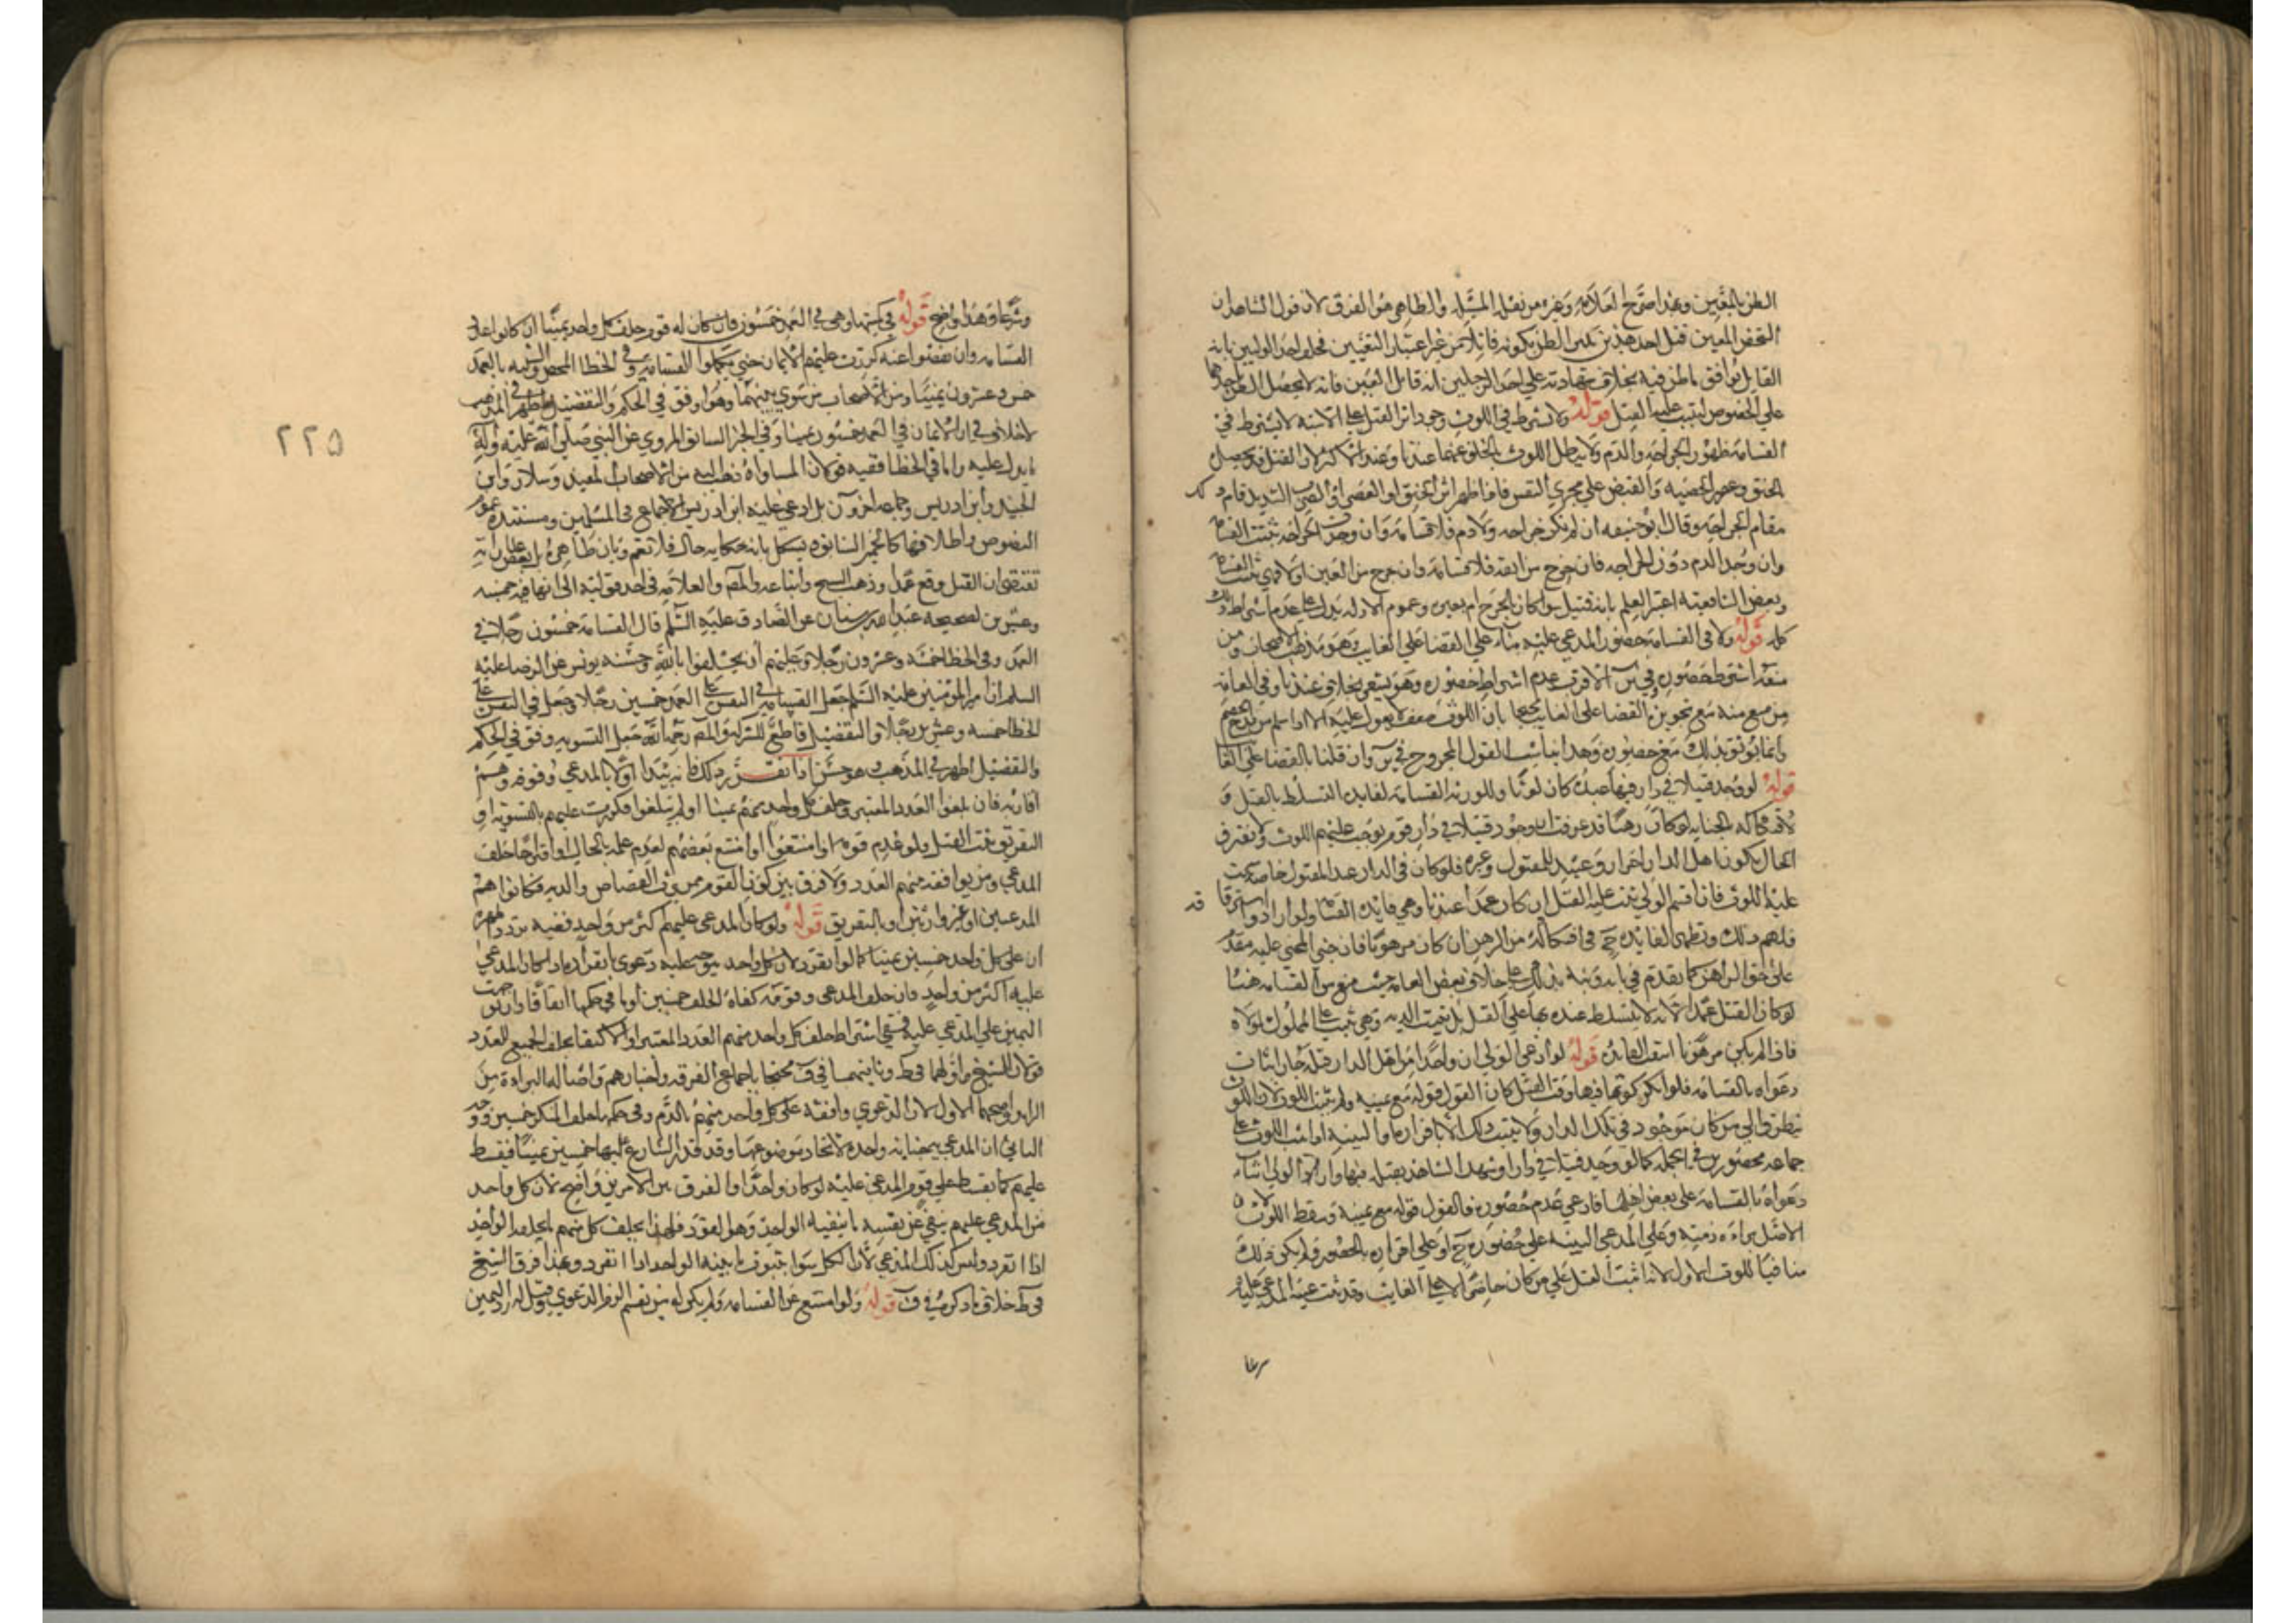 الظن بالمعين وبهذا صرح العلامة وغيره من نقل المسئلة والظاهر هو الفرق لان قول الشاهد ان
الشخص المعين قتل احد هذين يثير الظن بكونه قاتلا من غير اعتبار التعيين فحلف احد الوليين بانه
القاتل يوافق ما ظن فيه بخلاف شهادته على احد الرجلين انه قاتل المعين فانه لا يحصل الظن باحدهما
على الخصوص ليثبت عليه القتل قوله ولا يشترط في اللوث وجود اثر القتل على الاشبه لا يشترط في
القسامة ظهور الجراحة والدم ولا يبطل اللوث بالخلو عنهما عندنا وعند الاكثر لان القتل قد يحصل
بالخنق وعصر الخصية والقبض على مجرى النفس فاذا ظهر اثر الخنق او العصر او الضرب الشديد قام ذلك
مقام الجراحة وقال ابو حنيفه ان لم يكن جراحه ولا دم فلا قسامة وان وجدت الجراحه ثبتت القسامة
وان وجد الدم دون الجراحه فان خرج من انفه فلا قسامة وان خرج من العين او الاذن ثبتت القسامة
وبعض الشافعية اعتبر العلم بانه قتيل سوا كان بالجرح ام بغيره وعموم الادله يدل على عدم اشتراط ذلك
كله قوله ولا في القسامة حضور المدعى عليه بناء على القضا على الغايب وهو مذهب الاصحاب ومن
منعه اشترط حضوره الاقرب عدم اشتراط حضوره وهو يشعر بخلاف عندنا وفي العامة
من منع منه مع تجويزه القضا على الغايب محتجا بان اللوث ضعيف لا يعول عليه الا اذا سلم من قدح الخصم
وانما يوثق بذلك مع حضوره وهذا يناسب القول المرجوح وان قلنا بالقضا على الغايب
قوله لو وجد قتيلا في دار فيها عبده كان لوثا وللورثة القسامة لفايدة التسلط بالقتل و
لافتكاكه بالجنايه لو كان رهنا قد عرفت ان وجود قتيلا في دار قوم يوجب عليهم اللوث ولا يفترق
الحال بكون اهل الدار احرار وعبيد للمقتول وغيره فلو كان في الدار عبد المقتول خاصة ثبت
عليه اللوث فان اقسم الولي ثبت عليه القتل ان كان عمدا عندنا وهي فايدة القسامة ولو ارادوا استرقاقه
فلهم ذلك وتظهر الفايدة ح في افتكاكه من الرهن ان كان مرهونا فان حق المجنى عليه مقدم
على حق الراهن كما تقدم في بابه ونبه بذلك على خلاف بعض العامة حيث منع من القسامة هنا
لو كان القتل عمدا لانه لا يتسلط عنده بها على القتل بل يثبت الدية وهي لا يثبت على المملوك لمولاه
فاذا لم يكن مرهونا انتفت الفايدة قوله لو ادعى الولي ان واحدا من اهل الدار قتله جاز اثبات
دعواه بالقسامه فلو انكر كونه فيها وقت القتل كان القول قوله مع يمينه ولم يثبت اللوث لان اللوث
يتطرق الى من كان موجود في تلك الدار ولا يثبت ذلك الا باقراره او البينه اذا ثبت اللوث على
جماعه محصورين في الجملة كما لو وجد قتيلا في دار او شهد الشاهد بقتله فيها وارام الولي اثبات
دعواه بالقسامة على بعض اهلها فادعى عدم حضوره فالقول قوله مع يمينه ويسقط اللوث لان
الاصل براءة ذمته وعلى المدعي البينة على حضوره ح او على اقراره بالحضور ولم يكن ذلك
منافيا للوث الاول لانه اثبت القتل على من كان حاضرا لا على الغايب وقد ثبت غيبة المدعى عليه
٢٢٥
وشرعا وهذا واضح قوله في كميتها وهي في العمد خمسون فان كان له قوم حلف كل واحد يمينا ان كانوا عدد
القسامه وان نقصوا عنه كررت عليهم الايمان حتى يكملوا القسامة وفي الخطا المحض والشبيه بالعمد
خمس وعشرون يمينا ومن الاصحاب من سوى بينهما وهو اوفق في الحكم والتفصيل اظهر في المذهب
لا خلاف في ان الايمان في العمد خمسون يمينا وفي الخبر السابق المروي عن النبي صلى الله عليه وآله
ما يدل عليه واما في الخطا ففيه قولان المساواة ذهب اليه من الاصحاب المفيد وسلار وابن
الجنيد وابن ادريس وجماعه اخرون بل ادعى عليه ابن ادريس الاجماع في المسلمين ومستنده عموم
النصوص واطلاقها كالخبر السابق ويشكل بانه حكايه حال فلا تعم وبان ظاهره بل بعض رواياته
تقتضي ان القتل وقع عمدا وذهب الشيخ واتباعه والمصر والعلامة في احد قوليه الى انها فيه خمسه
وعشرين لصحيحه عبد الله بن سنان عن الصادق عليه السلم قال القسامة خمسون رجلا في
العمد وفي الخطا خمسة وعشرون رجلا وعليهم ان يحلفوا بالله وحسنه يونس عن الرضا عليه
السلم ان امير المؤمنين عليه السلم جعل القسامة في النفس على العمد خمسين رجلا وجعل في النفس على
الخطا خمسه وعشرين رجلا والتفصيل قاطع للشركة والمصر رحمه الله جعل التسويه اوفق في الحكم
والتفضيل اظهر في المذهب وهو حسن اذا تقرر ذلك فانه يبتدا اولا بالمدعي وقومه وهم
اقاربه فان بلغوا العدد المعتبر وحلف كل واحد منهم يمينا او لم يبلغوا فكررت عليهم بالتسويه او
التفريق ثبت القتل ولو عدم قومه او امتنعوا او امتنع بعضهم لعدم علمه بالحال او اقتراحا حلف
المدعي ومن يوافقه منهم العدد ولا فرق بين كون القوم ممن يرث القصاص والدية فكانوا هم
المدعيين او غير وارثين او بالتفريق قوله ولو كان المدعى عليهم اكثر من واحد ففيه تردد اظهره
ان على كل واحد خمسين يمينا كما لو انفرد لان كل واحد يتوجه عليه دعوى بانفراده اذا كان المدعى
عليه اكثر من واحد فان حلف المدعي وقومه كفاه الحلف خمسين او ما في حكمها اتفاقا وان توجهت
اليمين على المدعى عليه ففي اشتراط حلف كل واحد منهم العدد المعتبر او الاكتفا بحلف الجميع للعدد
قولان للشيخ اولهما في ط وثانيهما في ف محتجا باجماع الفرقه واخبارهم واصالة البراءة من
الزايد واصحهما الاول لان الدعوى واقعة على كل واحد منهم بالدم ومن حكمها حلف المنكر خمسين ووجه
الثاني ان المدعى به جناية واحده لاتحاد موضوعها وقد قدر الشارع عليها خمسين يمينا فيقسط
عليهم كما يقسط على قوم المدعى عليه لو كان واحدا والفرق بين الامرين واضح لان كل واحد
من المدعى عليهم ينفي عن نفسه ما ينفيه الواحد وهو القود فلهذا يحلف كل منهم ما يحلفه الواحد
اذا انفرد وليس كذلك المدعي لان الكل سوا يثبتون ما يثبته الواحد اذا انفرد وبهذا فرق الشيخ
في ط خلاف ما ذكره في ف قوله ولو امتنع عن القسامه ولم يكن له من يقسم الزم الدعوى وقيل له رد اليمين